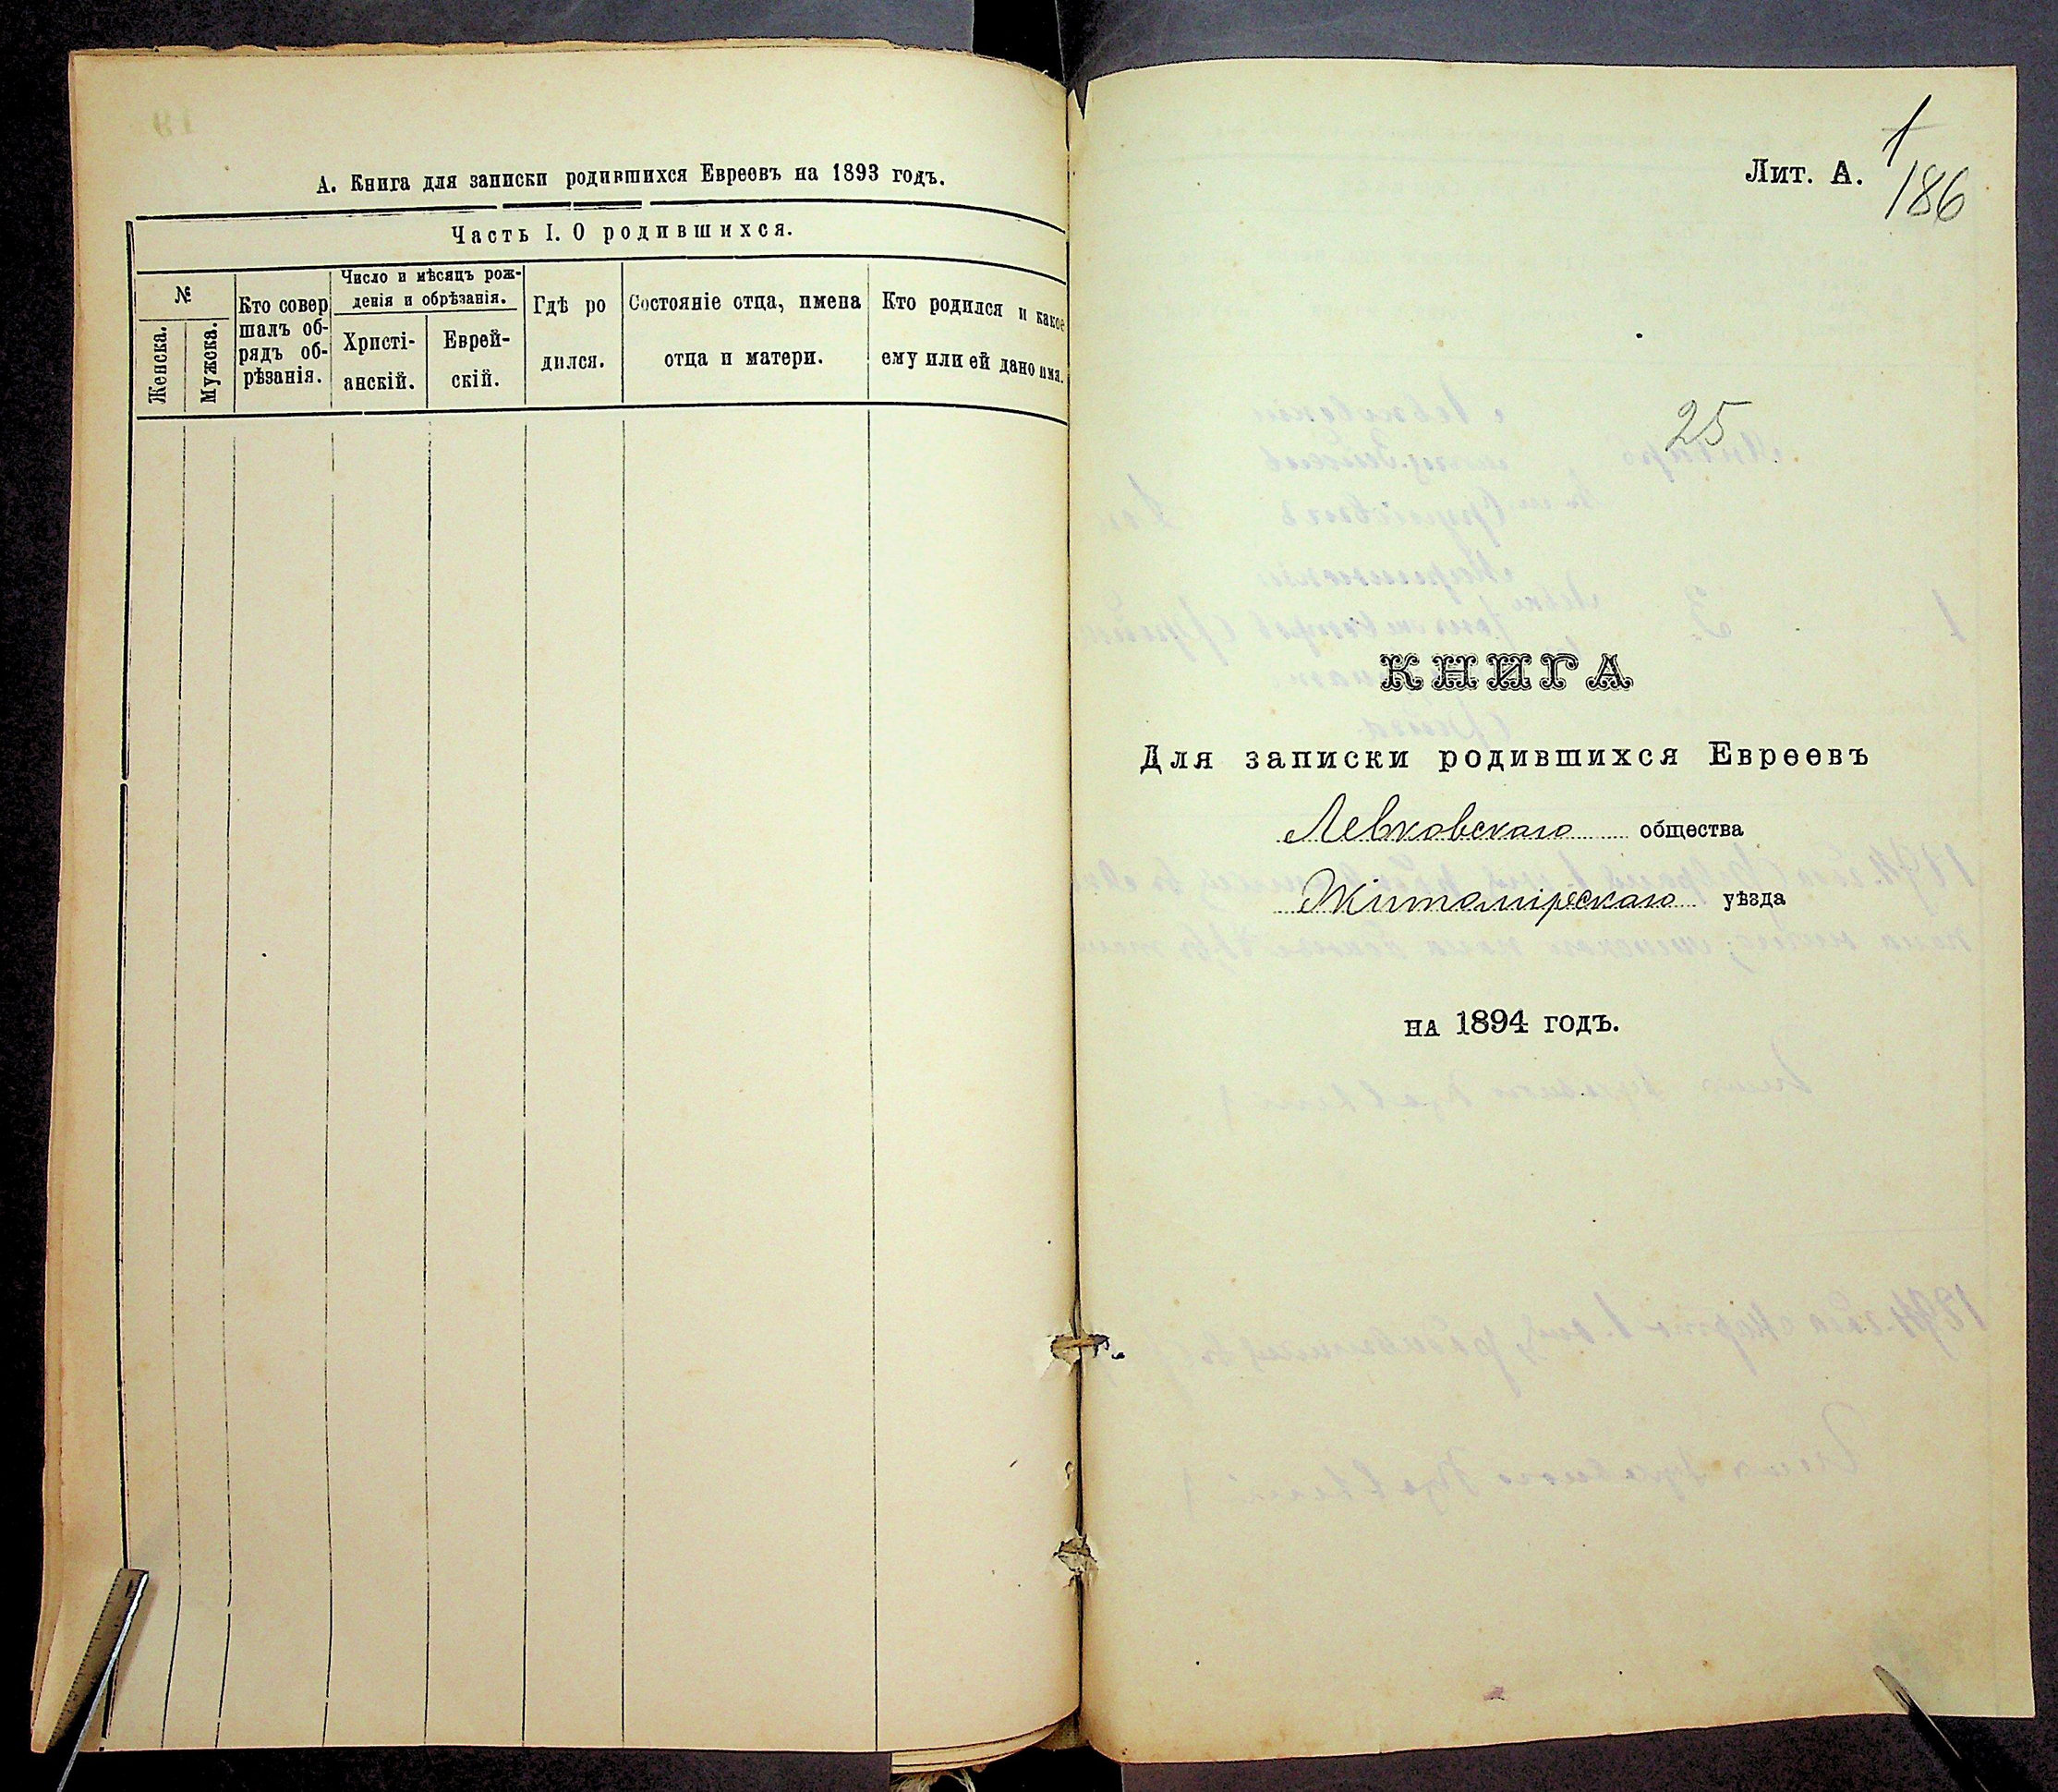 А. Книга для записки родившихся Евреевъ на 1893 годъ.
Часть I. О родившихся.
№
Женска.
Мужска.
Кто совер
шалъ об-
рядъ об-
рѣзанія.
Число и мѣсяцъ рож-
денія и обрѣзанія.
Христі-
анскій.
Еврей-
скій.
Гдѣ ро
дился.
Состояніе отца, имена
отца и матери.
Кто родился и какое
ему или ей дано имя.
1
Лит. А.
186
25
КНИГА
Для записки родившихся Евреевъ
Левковскаго общества
Житомірскаго уѣзда
на 1894 годъ.